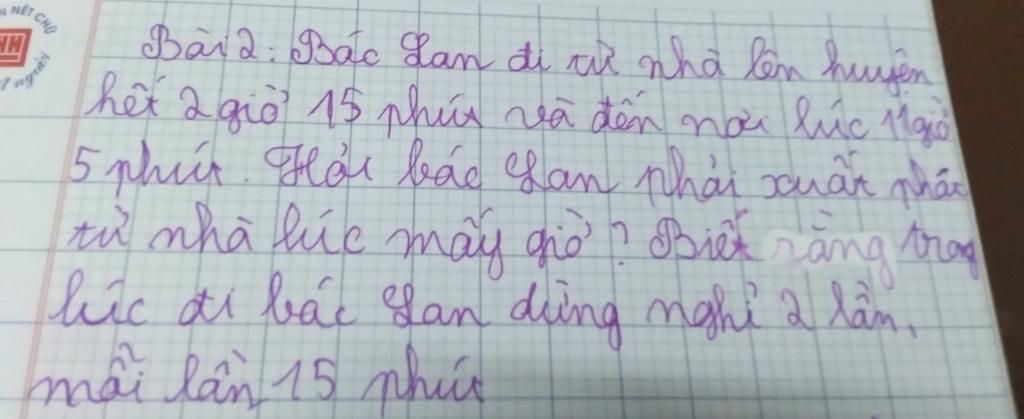 N NÉT CHỮ
người
Bài 2: Bác Lan đi từ nhà lên huyện
hết 2 giờ 15 phút và đến nơi lúc 11 giờ
5 phút. Hỏi bác Lan phải xuất phát
từ nhà lúc mấy giờ? Biết rằng trong
lúc đi bác Lan dừng nghỉ 2 lần,
mỗi lần 15 phút